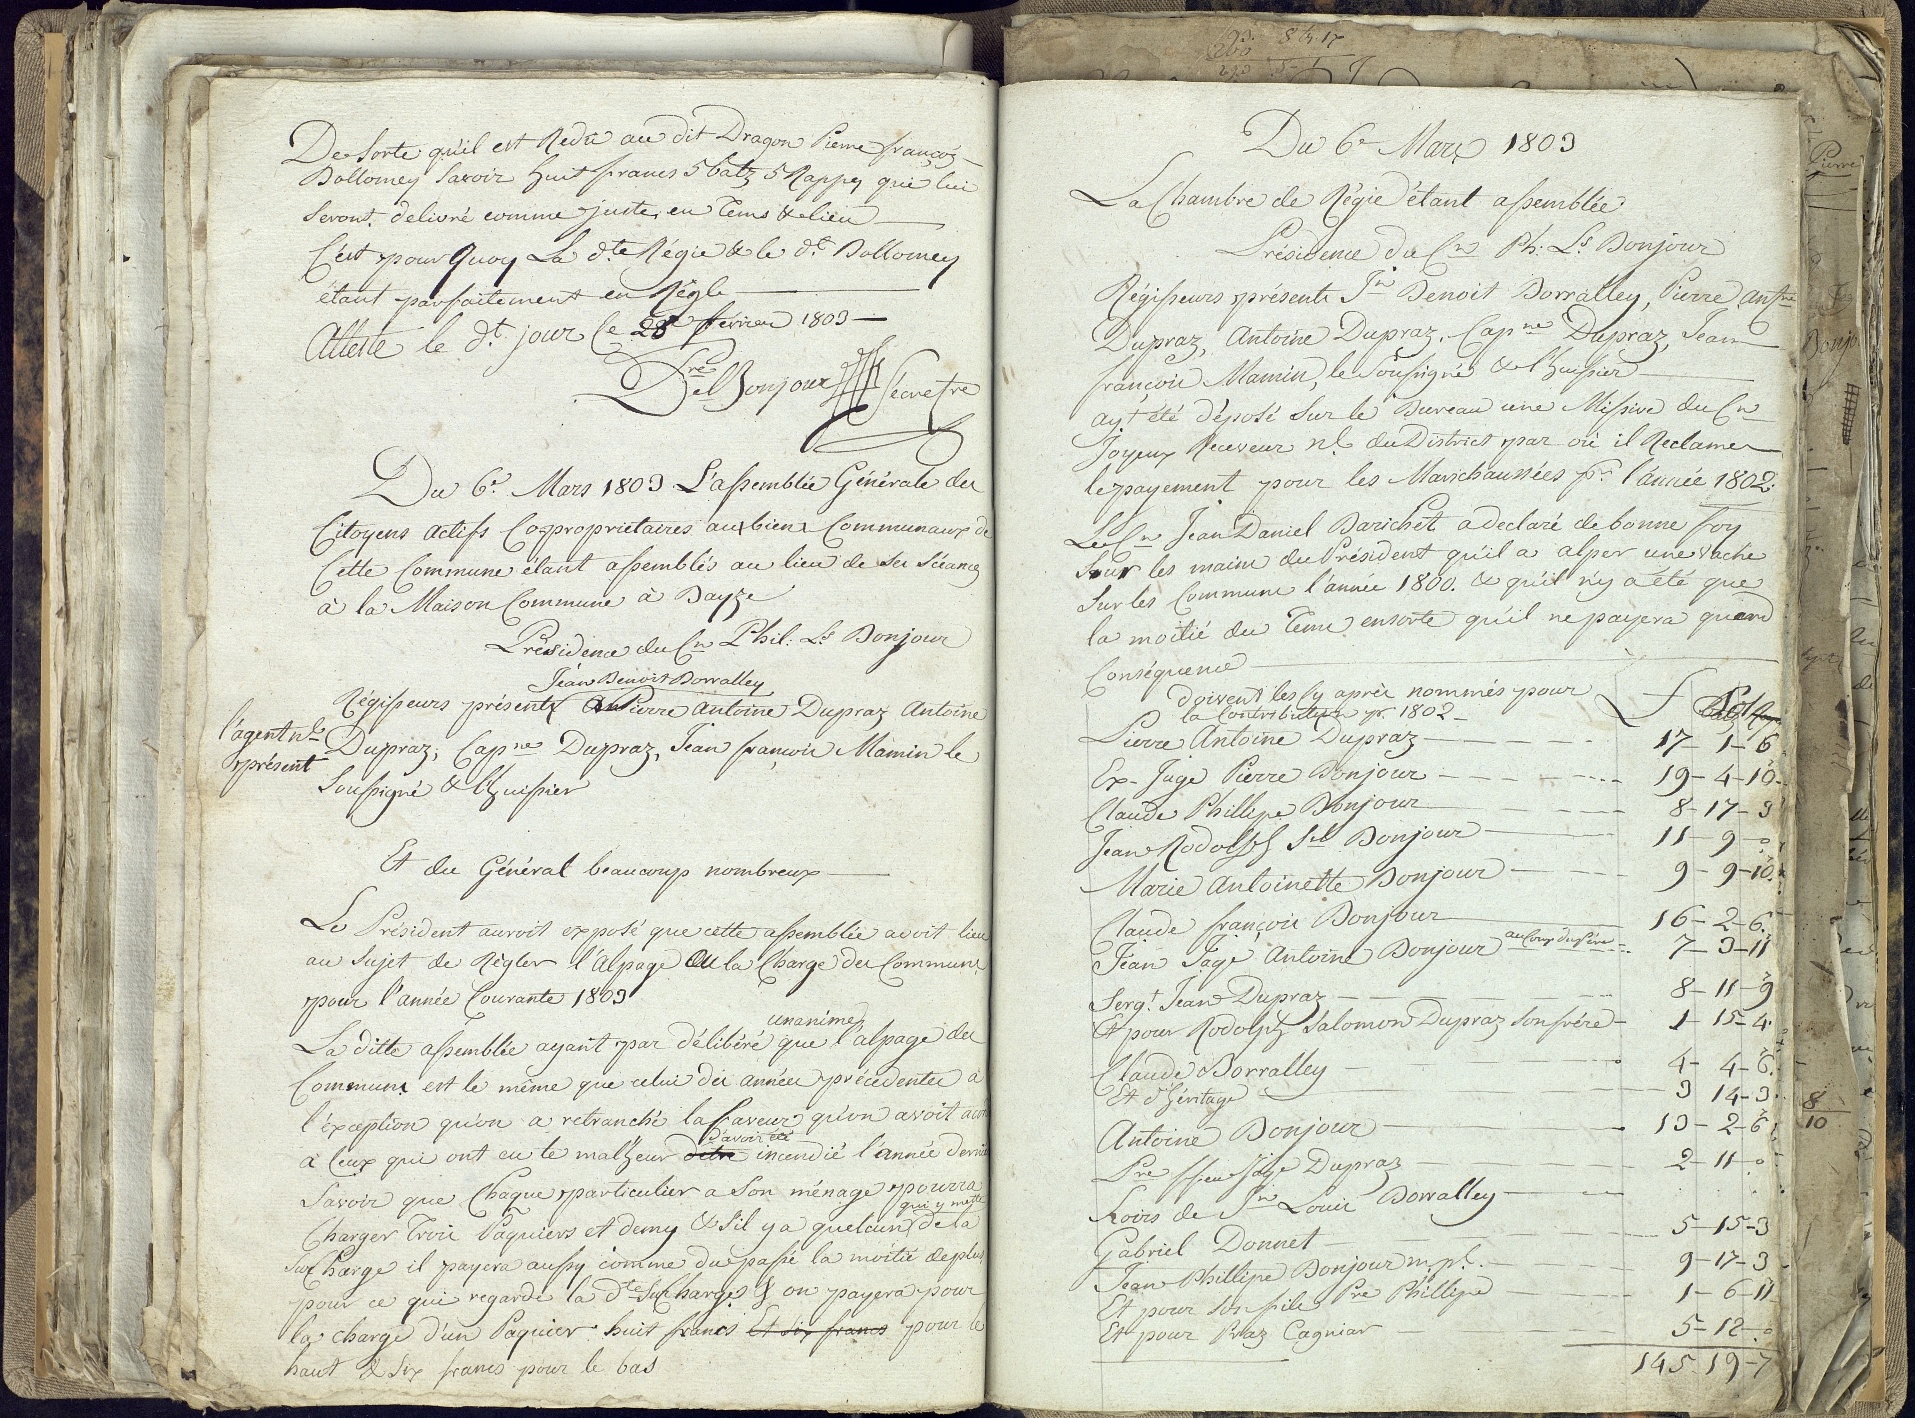 De Sorte qu'il est Redû au dit Dragon Pierre françois
Dollomey Savoir huit francs 5 batz 5 Rappes qui lui
Seront delivré comme juste, en Tems & lieu
C'est pour Quoy La d.te Régie & le d.t Dollomey
étant parfaitement en Règle
Atteste le d.t jour Ce 28e fevrier 1803
Del Bonjour Sécretre
Du 6e Mars 1803 L'assemblée Générale des
Citoyens actifs Copropriétaires aux biens Communaux de
Cette Commune étant assemblés au lieu de Ses Séances
à la Maison Commune à Bayze
Présidence du Cn Phil: Ls Bonjour
Jean Benoit Dorvalley
Régisseurs présents Pierre Antoine Dupraz Antoine
l'agent nl Dupraz, Capne Dupraz, Jean françois Mamin le
présent Soussigné & l'huissier
Et du Général beaucoup nombreux
Le Président auroit exposé que cette assemblée avoit lieu
au Sujet de Régler l'alpage Ou la Charge des Communs
pour l'année Courante 1803
unanime
La ditte assemblée ayant par délibéré que l'alpage des
Communs est le même que celui des années précédentes à
l'éxception qu'on a retranché la faveur qu'on avoit
d'avoir été
à Ceux qui ont eu le malheur detre incendié l'année
Savoir que Chaque particulier a Son ménage pourra
qui y mette
Charger Trois Pâquiers et demy & s'il y a quelcun de la
Surcharge il payera aussy comme du passé la moitié de plus
pour ce qui regarde la dte SurCharge & on payera pour
la charge d'un Paquier huit francs Et six francs pour le
haut & six francs pour le bas
Du 6e Mars 1803
La Chambre de Régie étant assemblée
Présidence du Cn Ph. Ls Bonjour
Régisseurs présents Jn Benoit Dorvalley, Pierre antne
Dupraz, Antoine Dupraz, Capne Dupraz, Jean
françois Mamin, le Soussigné & l'huissier
ayt été déposé Sur le Bureau une Missive du Cn
Joyeux Receveur nl du District par où il Reclame
le payement pour les Marechaussées pr l'année 1802.
Le Cn Jean Daniel Barichet a declaré de bonne foy
Sous les mains du Président qu'il a alper une vache
Sur les Communs l'année 1800. & qu'il n'y a été que
la moitié du Tems ensorte qu'il ne payera quend
Conséquence
doivent les cy après nommés pour
la Contribution pr. 1802
Pierre Antoine Dupraz 17-1-6
Ex-Juge Pierre Bonjour 19-4-10
Claude Phillipe Bonjour 8-17-3
Jean Rodolph Sel Bonjour 11-9-0
Marie Antoinette Bonjour 9-9-10
Claude françois Bonjour 16-2-6
Jean Jaqe Antoine Bonjour 7-3-11
Sergt Jean Dupraz 8-11-9
Et pour Rodolph Salomon Dupraz Son frére 1-15-4
Claude Dorvalley 4-4-6
Et d'héritage 3 14-3
Antoine Bonjour 13-2-6
Pre feu Jaqe Dupraz 2-11-0
Hoirs de Jn Louis Dorvalley
Gabriel Donnet 5-15-3
Jean Phillipe Bonjour m.pl. 9-17-3
Et pour Son fils Pre Phillipe 1-6-11
Et pour Praz Cagniar 5-12-0
145-19-7
Pierre
8
10